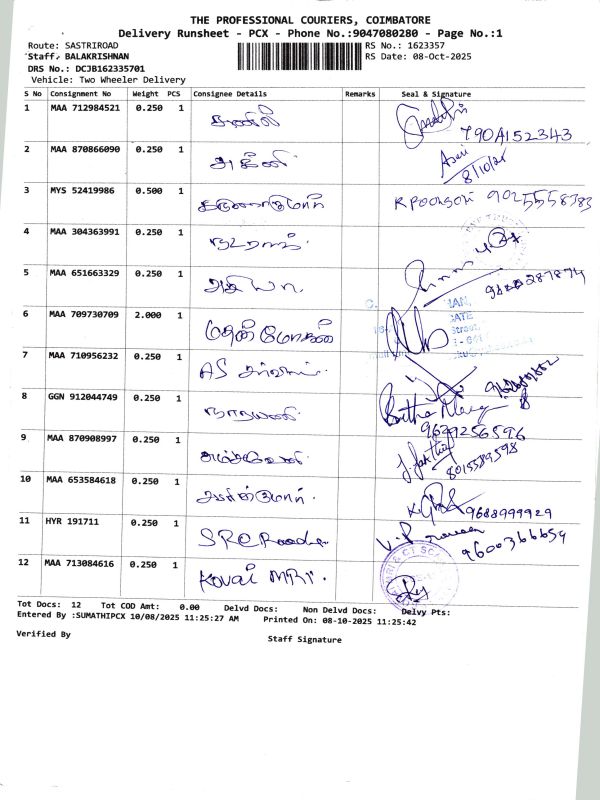 THE PROFESSIONAL COURIERS, COIMBATORE
Delivery Runsheet - PCX - Phone No.:9047080280 - Page No.:1
Route: SASTRIROAD RS No.: 1623357
Staff. BALAKRISHNAN RS Date: 08-Oct-2025
DRS No.: DCJB162335701
Vehicle: Two Wheeler Delivery
S No Consignment No Weight PCS Consignee Details Remarks Seal & Signature
1 MAA 712984521 0.250 1
7904152343
2 MAA 870866090 0.250 1 அக்னி
3 MYS 52419986 0.500 1 9025558383
4 MAA 304363991 0.250 1 நடராஜ்
5 MAA 651663329 0.250 1
6 MAA 709730709 2.000 1 மதன் மோகன்
7 MAA 710956232 0.250 1 AS
8 GGN 912044749 0.250 1 நாராயணி
9629256596
9 MAA 870908997 0.250 1
8015589598
10 MAA 653584618 0.250 1 9688999929
11 HYR 191711 0.250 1 SRC
9600366659
12 MAA 713084616 0.250 1 KOVAI
Tot Docs: 12 Tot COD Amt: 0.00 Delvd Docs: Non Delvd Docs: Delvy Pts:
Entered By :SUMATHIPCX 10/08/2025 11:25:27 AM Printed On: 08-10-2025 11:25:42
Verified By Staff Signature